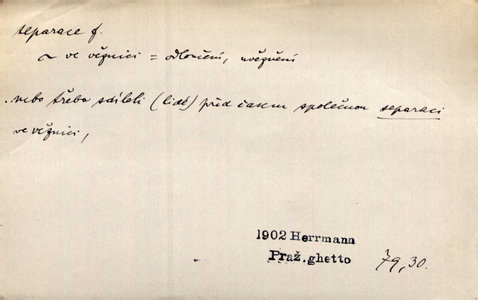 separace f.
~ ve věznici = odloučení, uvěznění
nebo třeba sdíleli (lidé) před časem společnou separaci
ve věznici,
1902 Herrmann
Praž. ghetto
79,30.